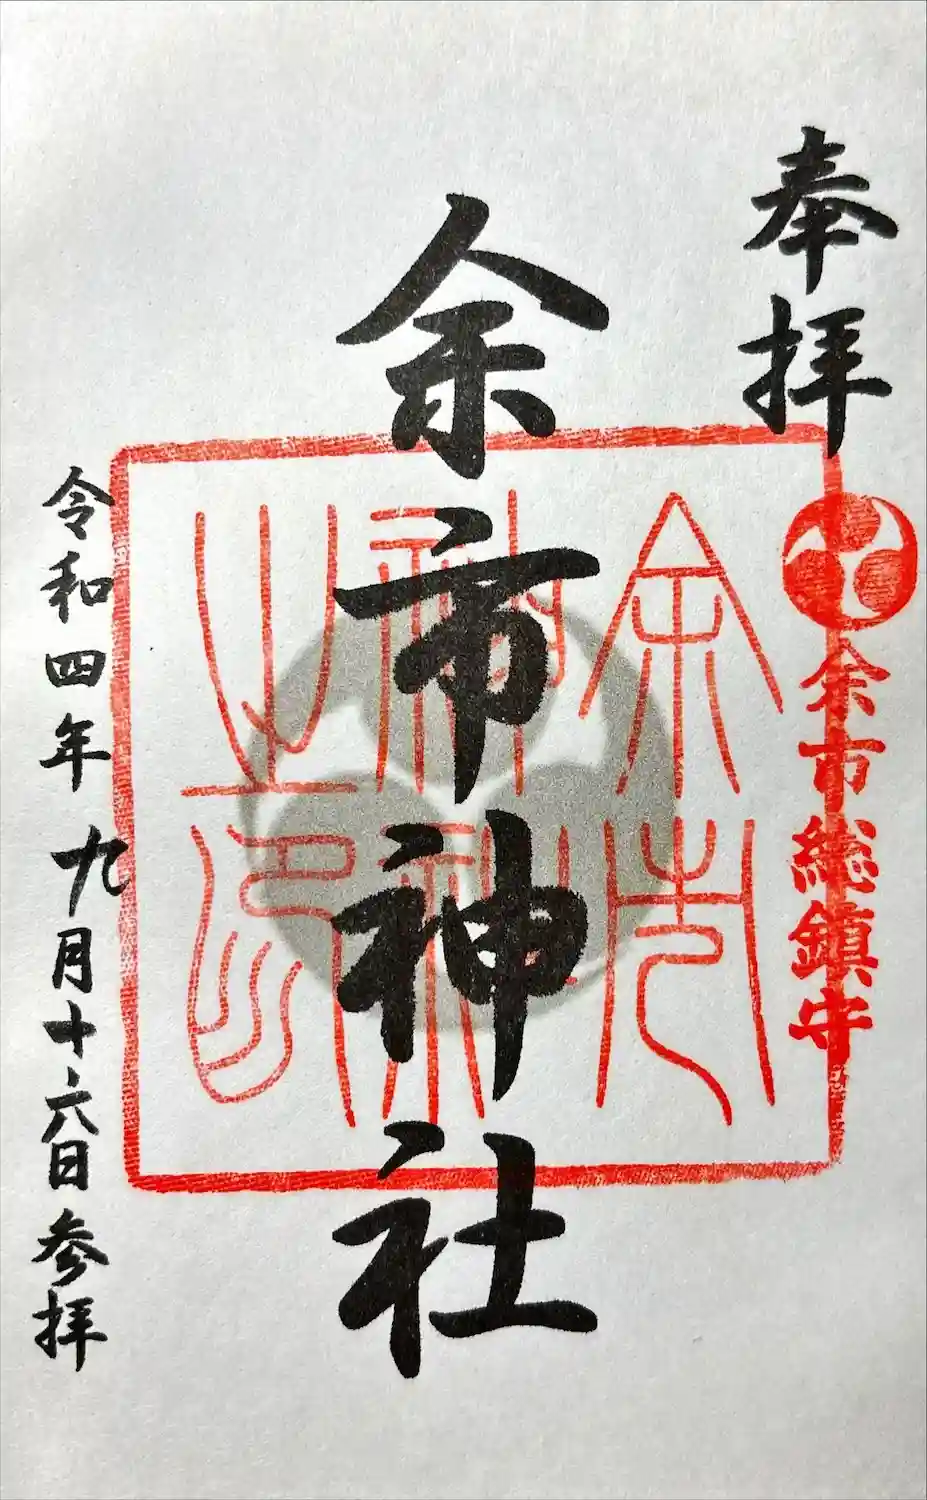 奉拝
余市総鎮守
余市神社
余市神社之印
令和四年九月十六日参拝